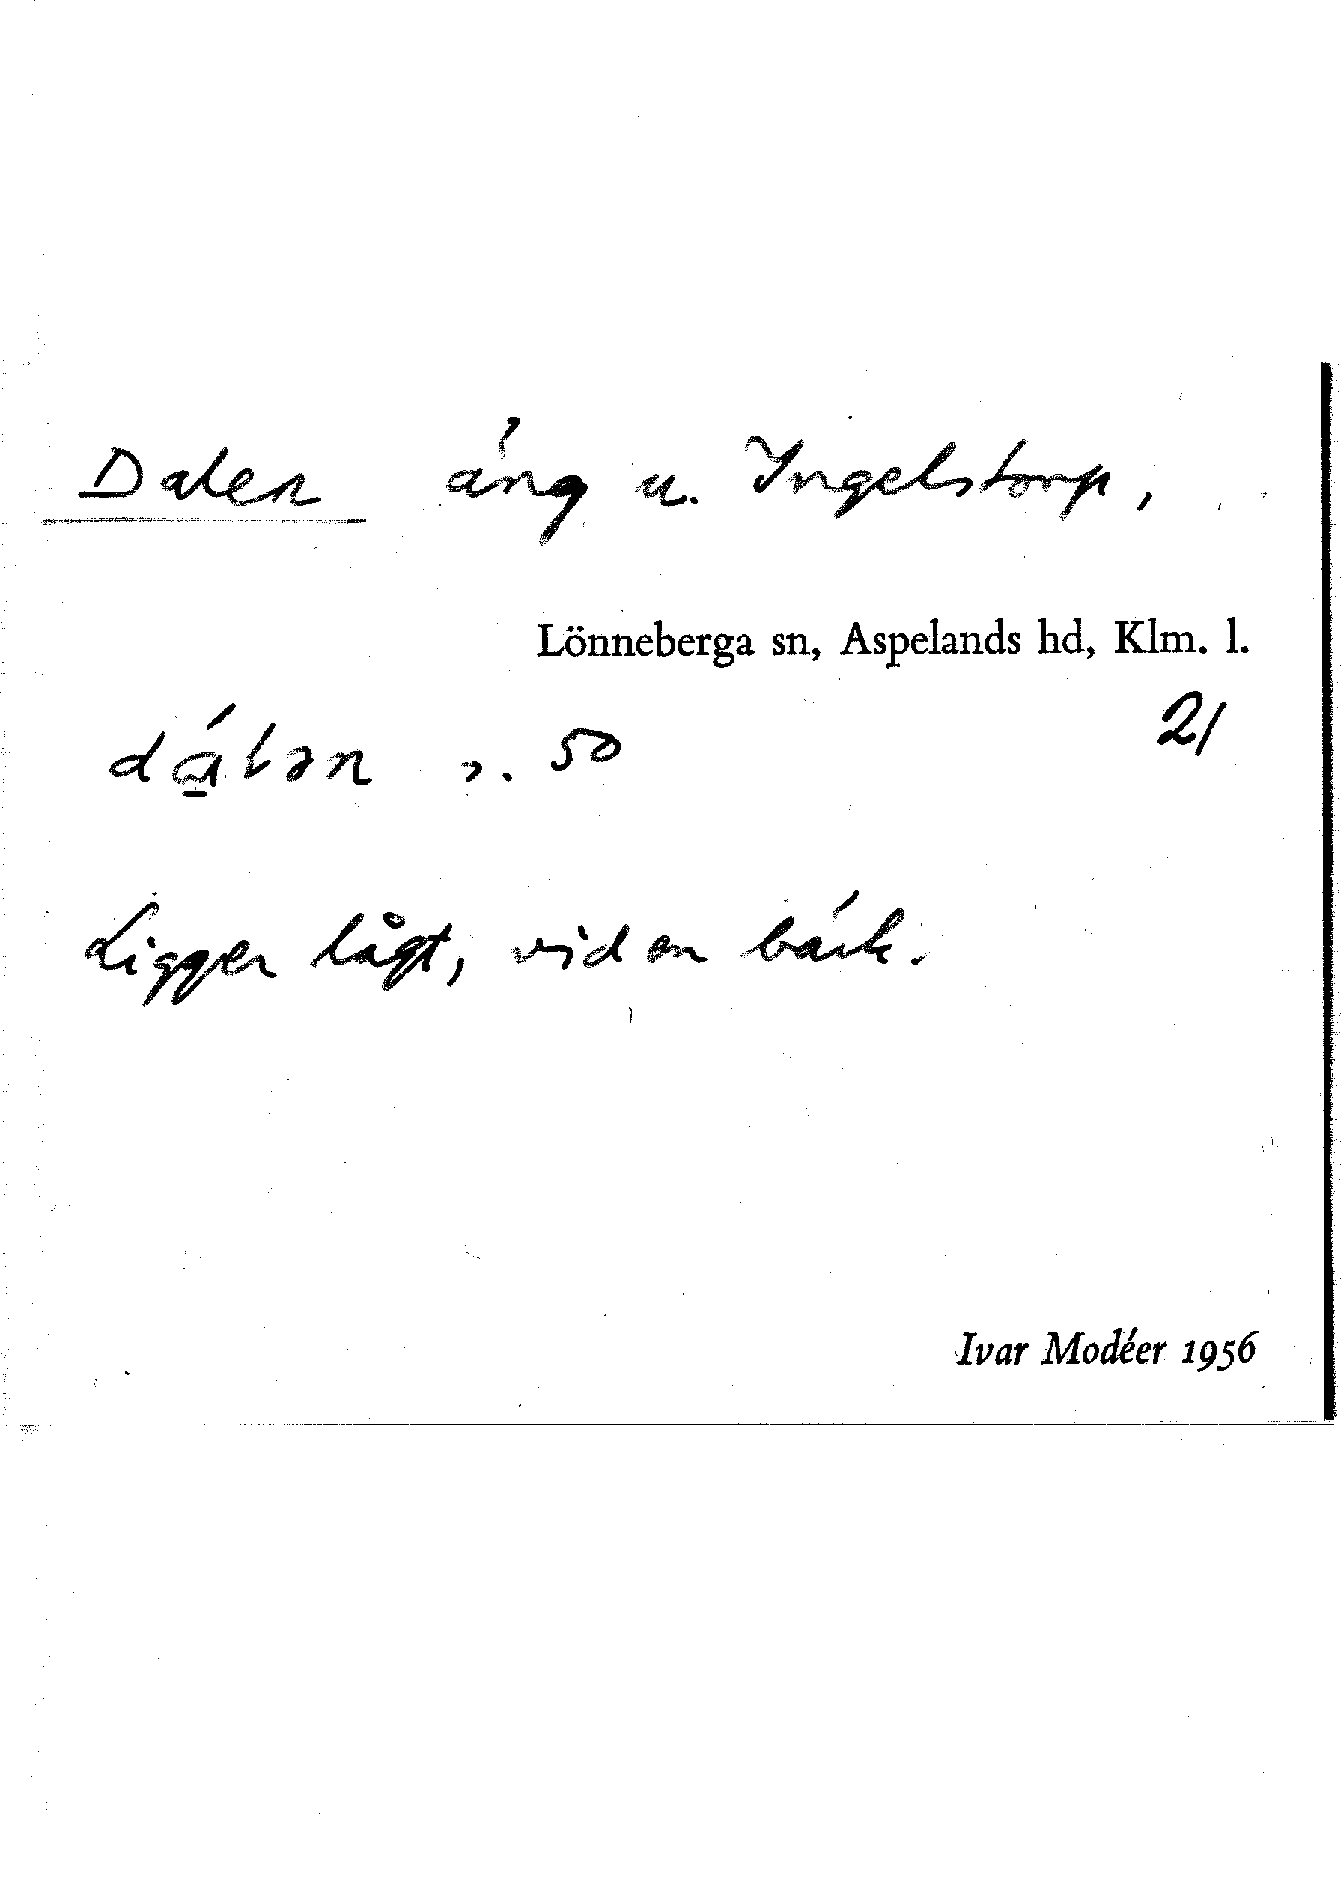 Dalen äng u. Ingelstorp,
Lönneberga sn, Aspelands hd, Klm. l.
dá̱lən s. 50 21
Ligger lågt, vid en bäck.
Ivar Modéer 1956